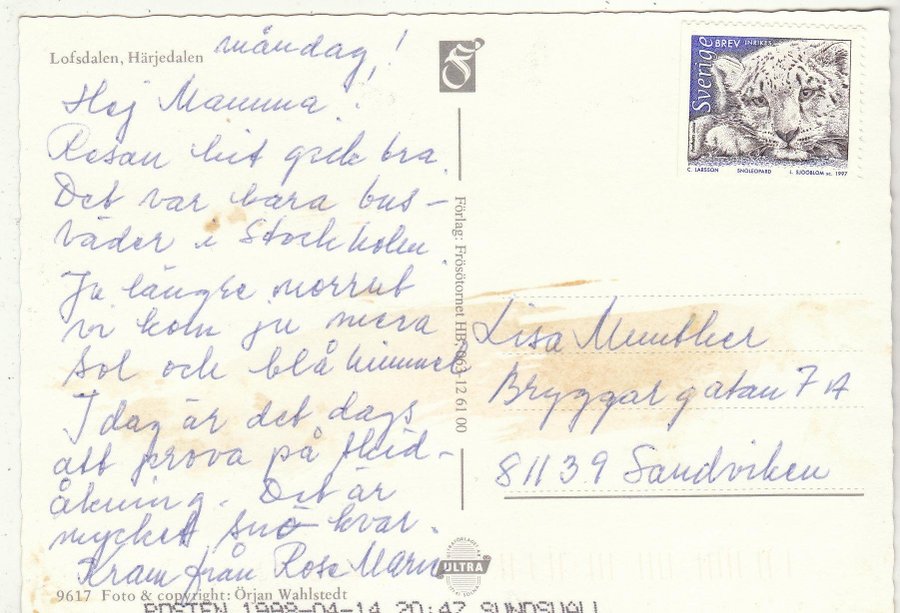 Lofsdalen, Härjedalen
måndag!
Hej Mamma!
Resan hit gick bra.
Det var bara bus-
väder i Stockholm.
Ju längre norrut
vi kom ju mera
sol och blå himmel
I dag är det dags
att prova på skid-
åkning. Det är
mycket snö kvar.
Kram från Rose Marie
9617 Foto & copyright: Örjan Wahlstedt
POSTEN 1998-04-14 20:47 SUNDSVALL
Förlag: Frösötornet HB, 063-12 61 00
ULTRA
Sverige
BREV INRIKES
C. LARSSON SNÖLEOPARD L. SJÖÖBLOM sc. 1997
Lisa Munther
Bryggargatan 7 A
81139 Sandviken